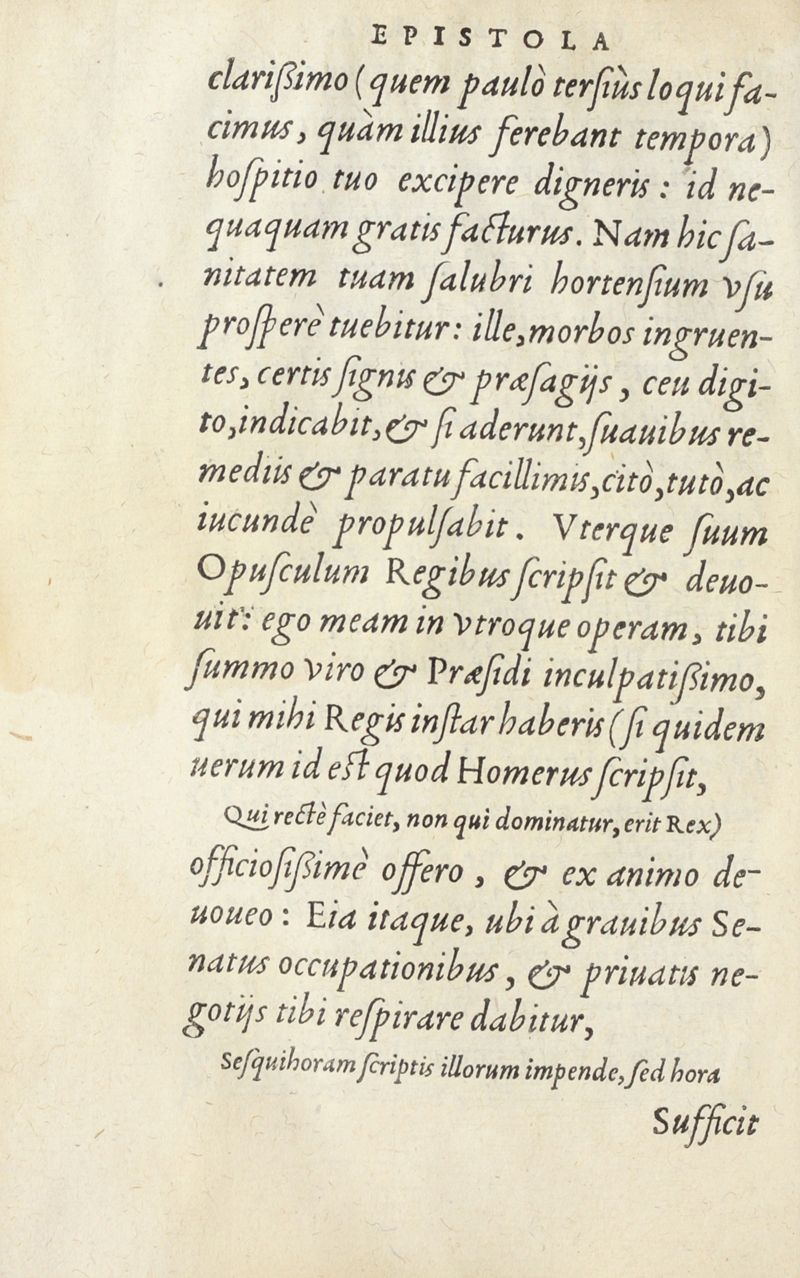 EPISTOLA
clarißimo (quem paulò terſiùs loqui fa-
cimus, quàm illius ferebant tempora)
hoſpitio tuo excipere digneris : id ne-
quaquam gratis facturus. Nam hic ſa-
nitatem tuam ſalubri hortenſium vſu
proſperè tuebitur: ille, morbos ingruen-
tes, certis ſignis & præſagijs, ceu digi-
to, indicabit, & ſi aderunt, ſuauibus re-
mediis & paratu facillimis, citò, tutò, ac
iucundè propulſabit. Vterque ſuum
Opuſculum Regibus ſcripſit & deuo-
uit: ego meam in vtroque operam, tibi
ſummo viro & Præſidi inculpatißimo,
qui mihi Regis inſtar haberis (ſi quidem
uerum id eſt quod Homerus ſcripſit,
Qui rectè faciet, non qui dominatur, erit Rex)
officioſißimè offero, & ex animo de-
uoueo : Eia itaque, ubi à grauibus Se-
natus occupationibus, & priuatis ne-
gotijs tibi reſpirare dabitur,
Seſquihoram ſcriptis illorum impende, ſed hora
Sufficit